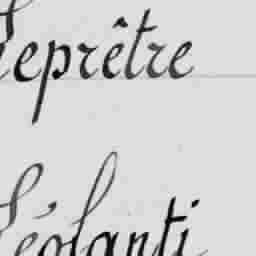 Leprêtre
Léolanti